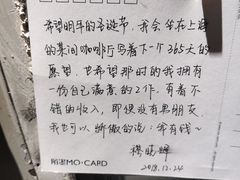 希望明年的圣诞节，我会坐在上海
的某间咖啡厅写着下一个365天的
愿望，也希望那时的我拥有
一份自己满意的工作，有着不
错的收入，即便没有男朋友，
我也可以骄傲的说：我有钱～
楼晓婵
2018.12.24
陌墨MO·CARD